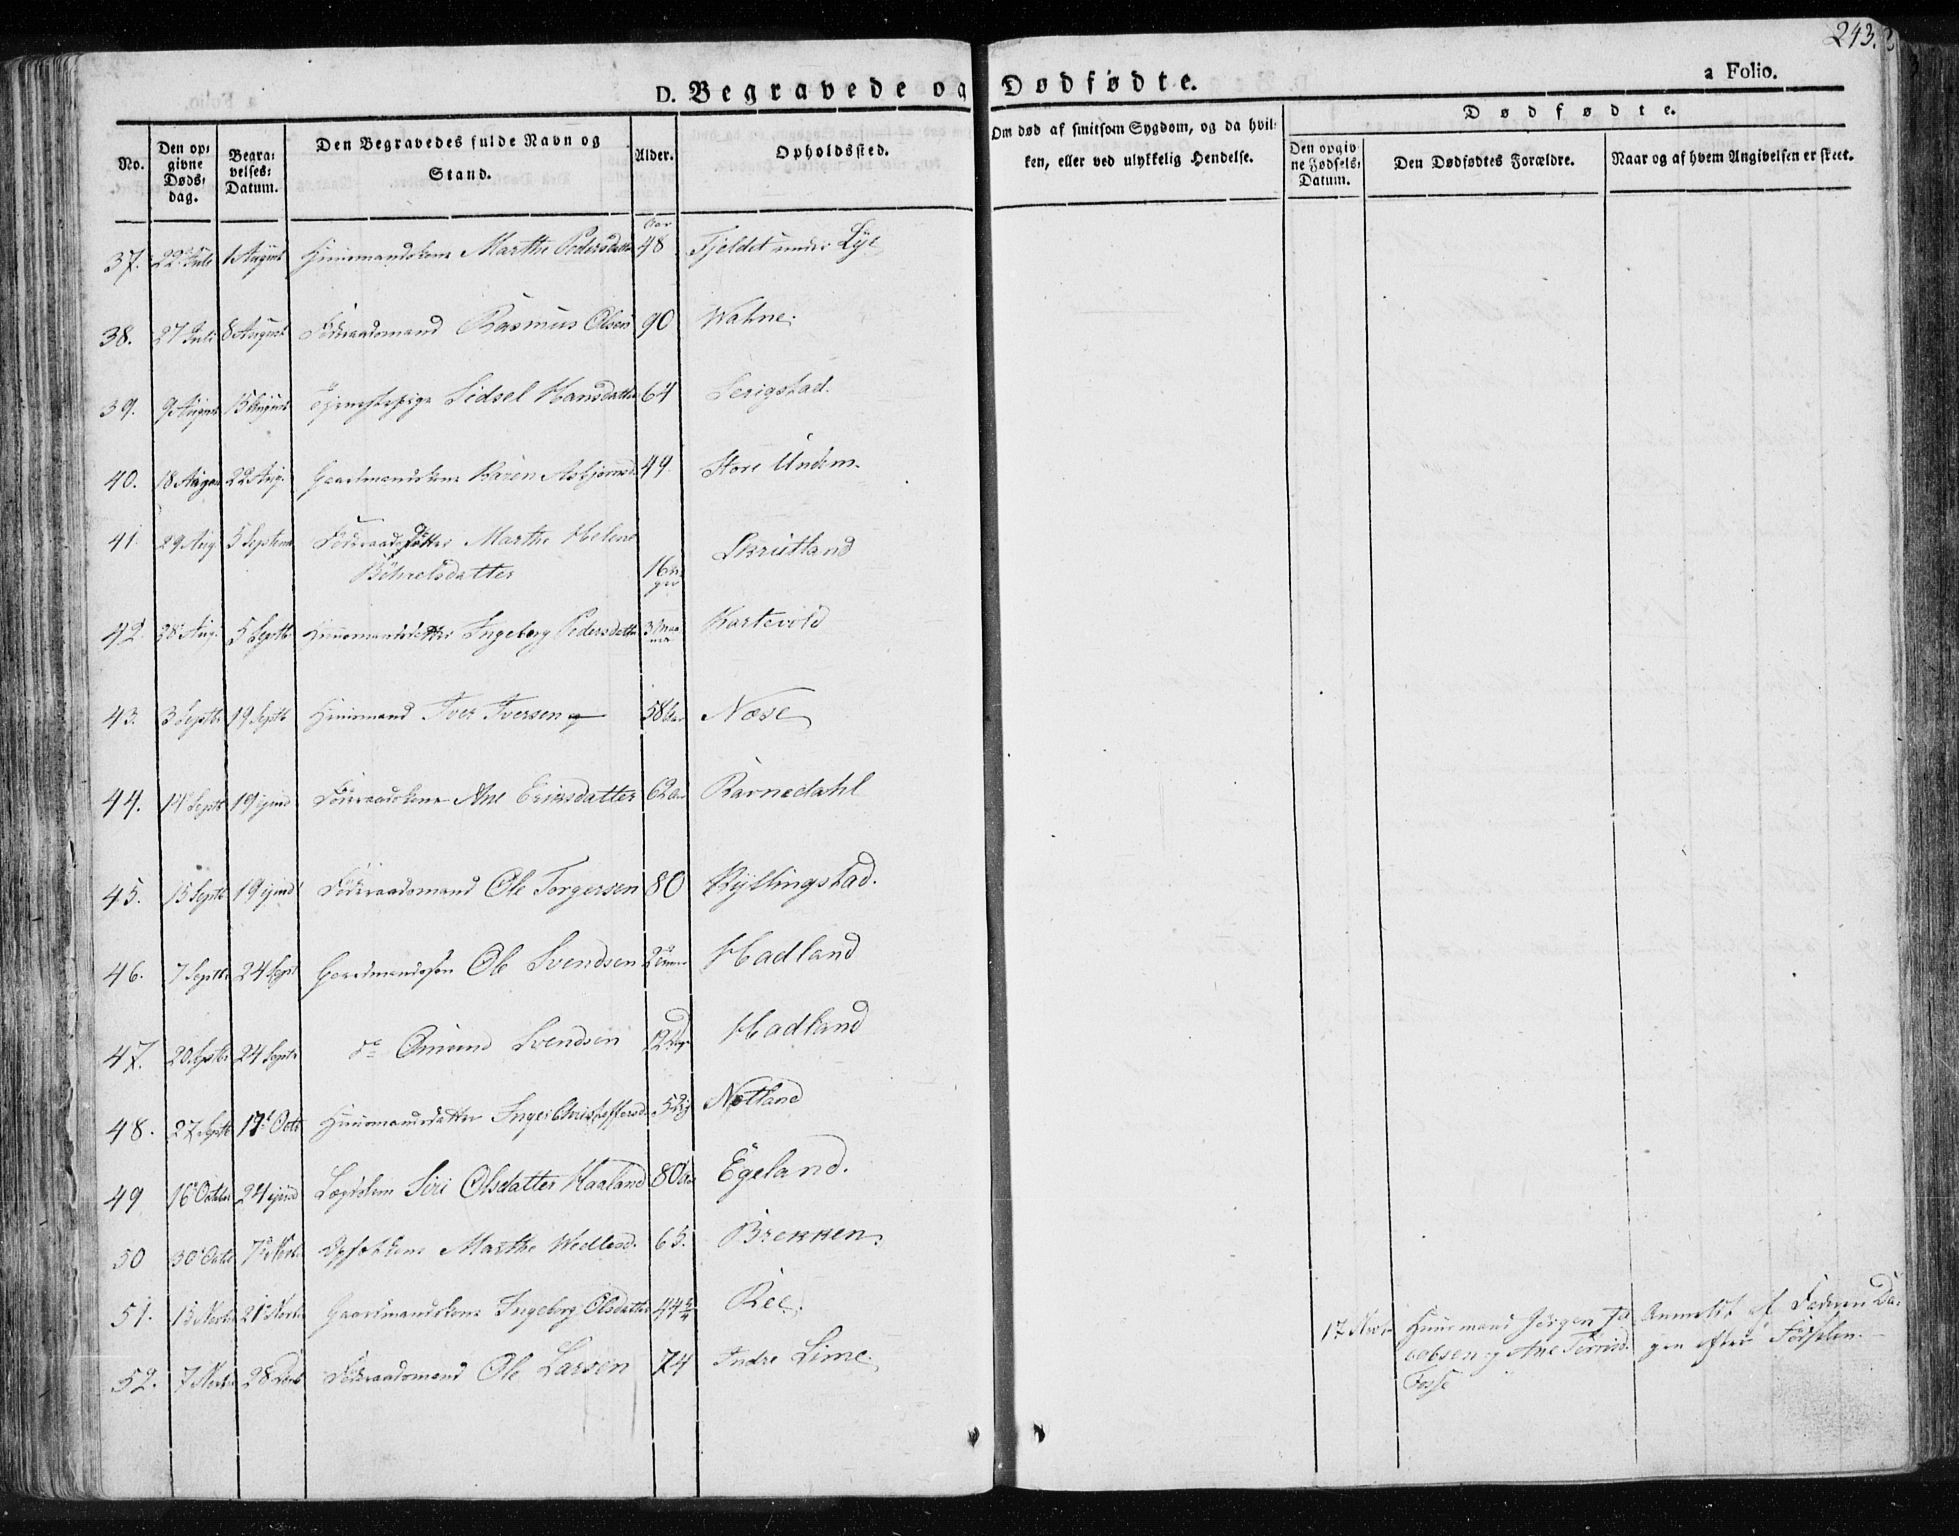 243.
D. Begravede og Dødfødte.
a Folio.
No.
Den op=
givne
Døds=
dag.
Begra=
velses=
Datum.
Den Begravedes fulde Navn og
Stand.
Alder.
Opholdssted.
Om død af smitsom Sygdom, og da hvil=
ken, eller ved ulykkelig Hendelse.
Dødfødte.
Den opgiv
ne Fødsels=
Datum.
Den Dødfødtes Forældre.
Naar og af hvem Angivelsen er skeet.
37. 22 Juli 1 August Huusmandskone Marthe Pedersdatter 48 Aar Fjeldet under Lye
38. 27 Juli 8 August Föderaadsmand Rasmus Olsen 90 Wahne.
39. 9 August 15 August Tjenestepige Sidsel Hansdatter 64 Serigstad.
40. 18 August 22 Aug. Gaardmandskone Karen Asbjörnsd. 49. Store Undem.
41. 29 Aug. 5 Septemb Föderaadsdatter Marthe Helene
Böhrelsdatter 16 Uger Skrutland
42. 28 Aug. 5 Septb Huusmandsdatter Ingeborg Pedersdatter 3 Maaner Hartevold
43. 3 Septb 19 Septb Huusmand Iver Iversen 58 Aar Næse
44. 14 Septb 19 ejusd Föderaadskone Ane Eriksdatter 62 Aar Ravnedahl
45. 15 Septb 19 ejusd Föderaadsmand Ole Torgersen 80 Kyllingstad.
46. 7 Septb 24 Sept Gaardmandssön Ole Svendsen Hadland
47. 20 Septb 24 Septb do Omund Svendsen 12 Dage Hadland
48. 27 Septb 17 Octb Huusmandsdatter Inger Christoffersd. Netland
49 16 Octobr 24 ejusd Lægdslem Siri Olsdatter Haaland 80 Aar Egeland.
50 30 Octb 7 Novb. Marthe Wedlesd. 65. Brekken.
51. 15 Novbr 21 Novbr Gaardmandskone Ingeborg Olsdatter 44 Ree.
17 Novb Huusmand Jörgen Ja
cobsen og Ane
Fosse
Anmeldt af Faderen Da=
gen efter Födselen.
52. 7 Novbr 28 Novb Föderaadsmand Ole Larsen 74 Indre Lime.